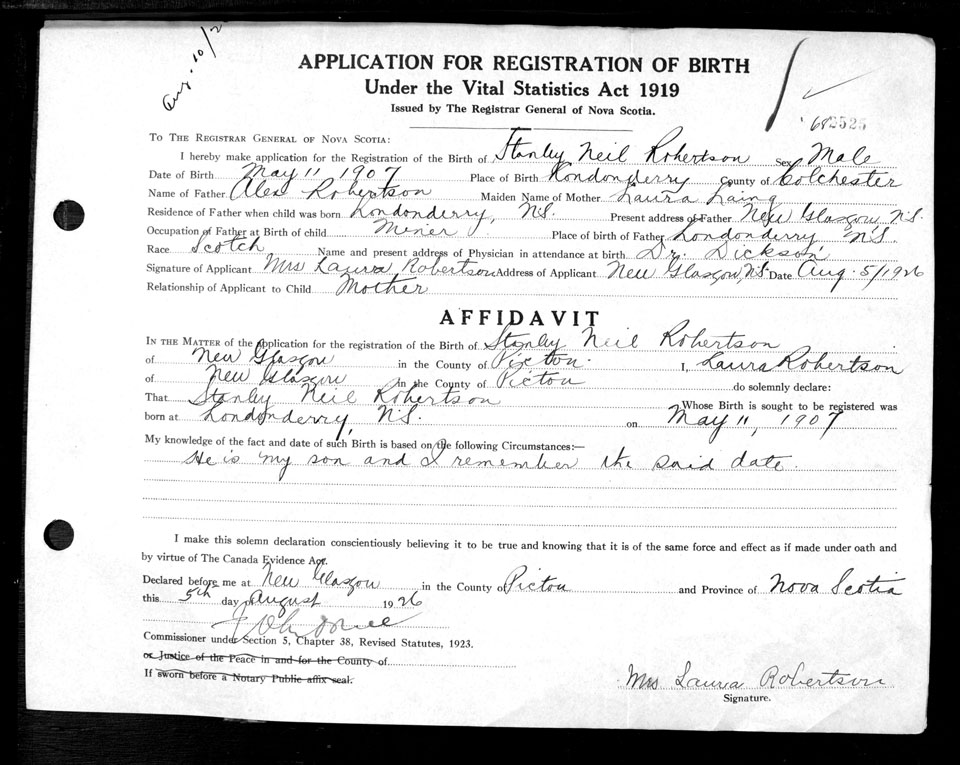 Aug. 10/2
APPLICATION FOR REGISTRATION OF BIRTH
Under the Vital Statistics Act 1919
Issued by The Registrar General of Nova Scotia.
682525
TO THE REGISTRAR GENERAL OF NOVA SCOTIA:
I hereby make application for the Registration of the Birth of Stanley Neil Robertson Sex Male
Date of Birth May 11 1907 Place of Birth Londonderry County of Colchester
Name of Father Alex Robertson Maiden Name of Mother Laura Laing
Residence of Father when child was born Londonderry, N.S. Present address of Father New Glasgow, N.S.
Occupation of Father at Birth of child Miner Place of birth of Father Londonderry N.S.
Race Scotch Name and present address of Physician in attendance at birth Dr. Dickson
Signature of Applicant Mrs Laura Robertson Address of Applicant New Glasgow, N.S. Date Aug. 5/1926
Relationship of Applicant to Child Mother
AFFIDAVIT
IN THE MATTER of the Application for the registration of the Birth of Stanley Neil Robertson
of New Glasgow in the County of Pictou. I, Laura Robertson
of New Glasgow in the County of Pictou do solemnly declare:
That Stanley Neil Robertson Whose Birth is sought to be registered was
born at Londonderry, N.S. on May 11, 1907
My knowledge of the fact and date of such Birth is based on the following Circumstances:—
He is my son and I remember the said date.
I make this solemn declaration conscientiously believing it to be true and knowing that it is of the same force and effect as if made under oath and
by virtue of The Canada Evidence Act.
Declared before me at New Glasgow in the County of Pictou and Province of Nova Scotia
this 5th day of August 1926
Commissioner under Section 5, Chapter 38, Revised Statutes, 1923.
or Justice of the Peace in and for the County of
If sworn before a Notary Public affix seal.
Mrs Laura Robertson
Signature.